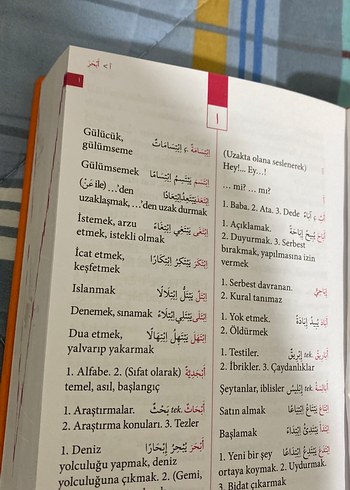 أ > أَبْحَرَ
أ
ا
أ (Uzakta olana seslenerek)
Hey!... Ey…!
… mi? … mı?
أَبٌ ج آبَاءٌ 1. Baba. 2. Ata. 3. Dede
أَبَاحَ يُبِيحُ إِبَاحَةً 1. Açıklamak.
2. Duyurmak. 3. Serbest
bırakmak, yapılmasına izin
vermek
إِبَاحِيٌّ 1. Serbest davranan.
2. Kural tanımaz
أَبَادَ يُبِيدُ إِبَادَةً 1. Yok etmek.
2. Öldürmek
أَبَارِيقُ tek. إِبْرِيقٌ 1. Testiler.
2. İbrikler. 3. Çaydanlıklar
أَبَالِسَةٌ tek. إِبْلِيسُ Şeytanlar, iblisler
اِبْتَاعَ يَبْتَاعُ اِبْتِيَاعًا Satın almak
اِبْتَدَأَ يَبْتَدِئُ اِبْتِدَاءً Başlamak
اِبْتَدَعَ يَبْتَدِعُ اِبْتِدَاعًا 1. Yeni bir şey
ortaya koymak. 2. Uydurmak.
3. Bidat çıkarmak
اِبْتِسَامَةٌ ج اِبْتِسَامَاتٌ Gülücük,
gülümseme
اِبْتَسَمَ يَبْتَسِمُ اِبْتِسَامًا Gülümsemek
اِبْتَعَدَ يَبْتَعِدُ اِبْتِعَادًا (عَنْ ile) …'den
uzaklaşmak, …'den uzak durmak
اِبْتَغَى يَبْتَغِي اِبْتِغَاءً İstemek, arzu
etmek, istekli olmak
اِبْتَكَرَ يَبْتَكِرُ اِبْتِكَارًا İcat etmek,
keşfetmek
اِبْتَلَّ يَبْتَلُّ اِبْتِلَالًا Islanmak
اِبْتَلَى يَبْتَلِي اِبْتِلَاءً Denemek, sınamak
اِبْتَهَلَ يَبْتَهِلُ اِبْتِهَالًا Dua etmek,
yalvarıp yakarmak
أَبْجَدِيَّةٌ 1. Alfabe. 2. (Sıfat olarak)
temel, asıl, başlangıç
أَبْحَاثٌ tek. بَحْثٌ 1. Araştırmalar.
2. Araştırma konuları. 3. Tezler
أَبْحَرَ يُبْحِرُ إِبْحَارًا 1. Deniz
yolculuğu yapmak, deniz
yolculuğuna çıkmak. 2. (Gemi,